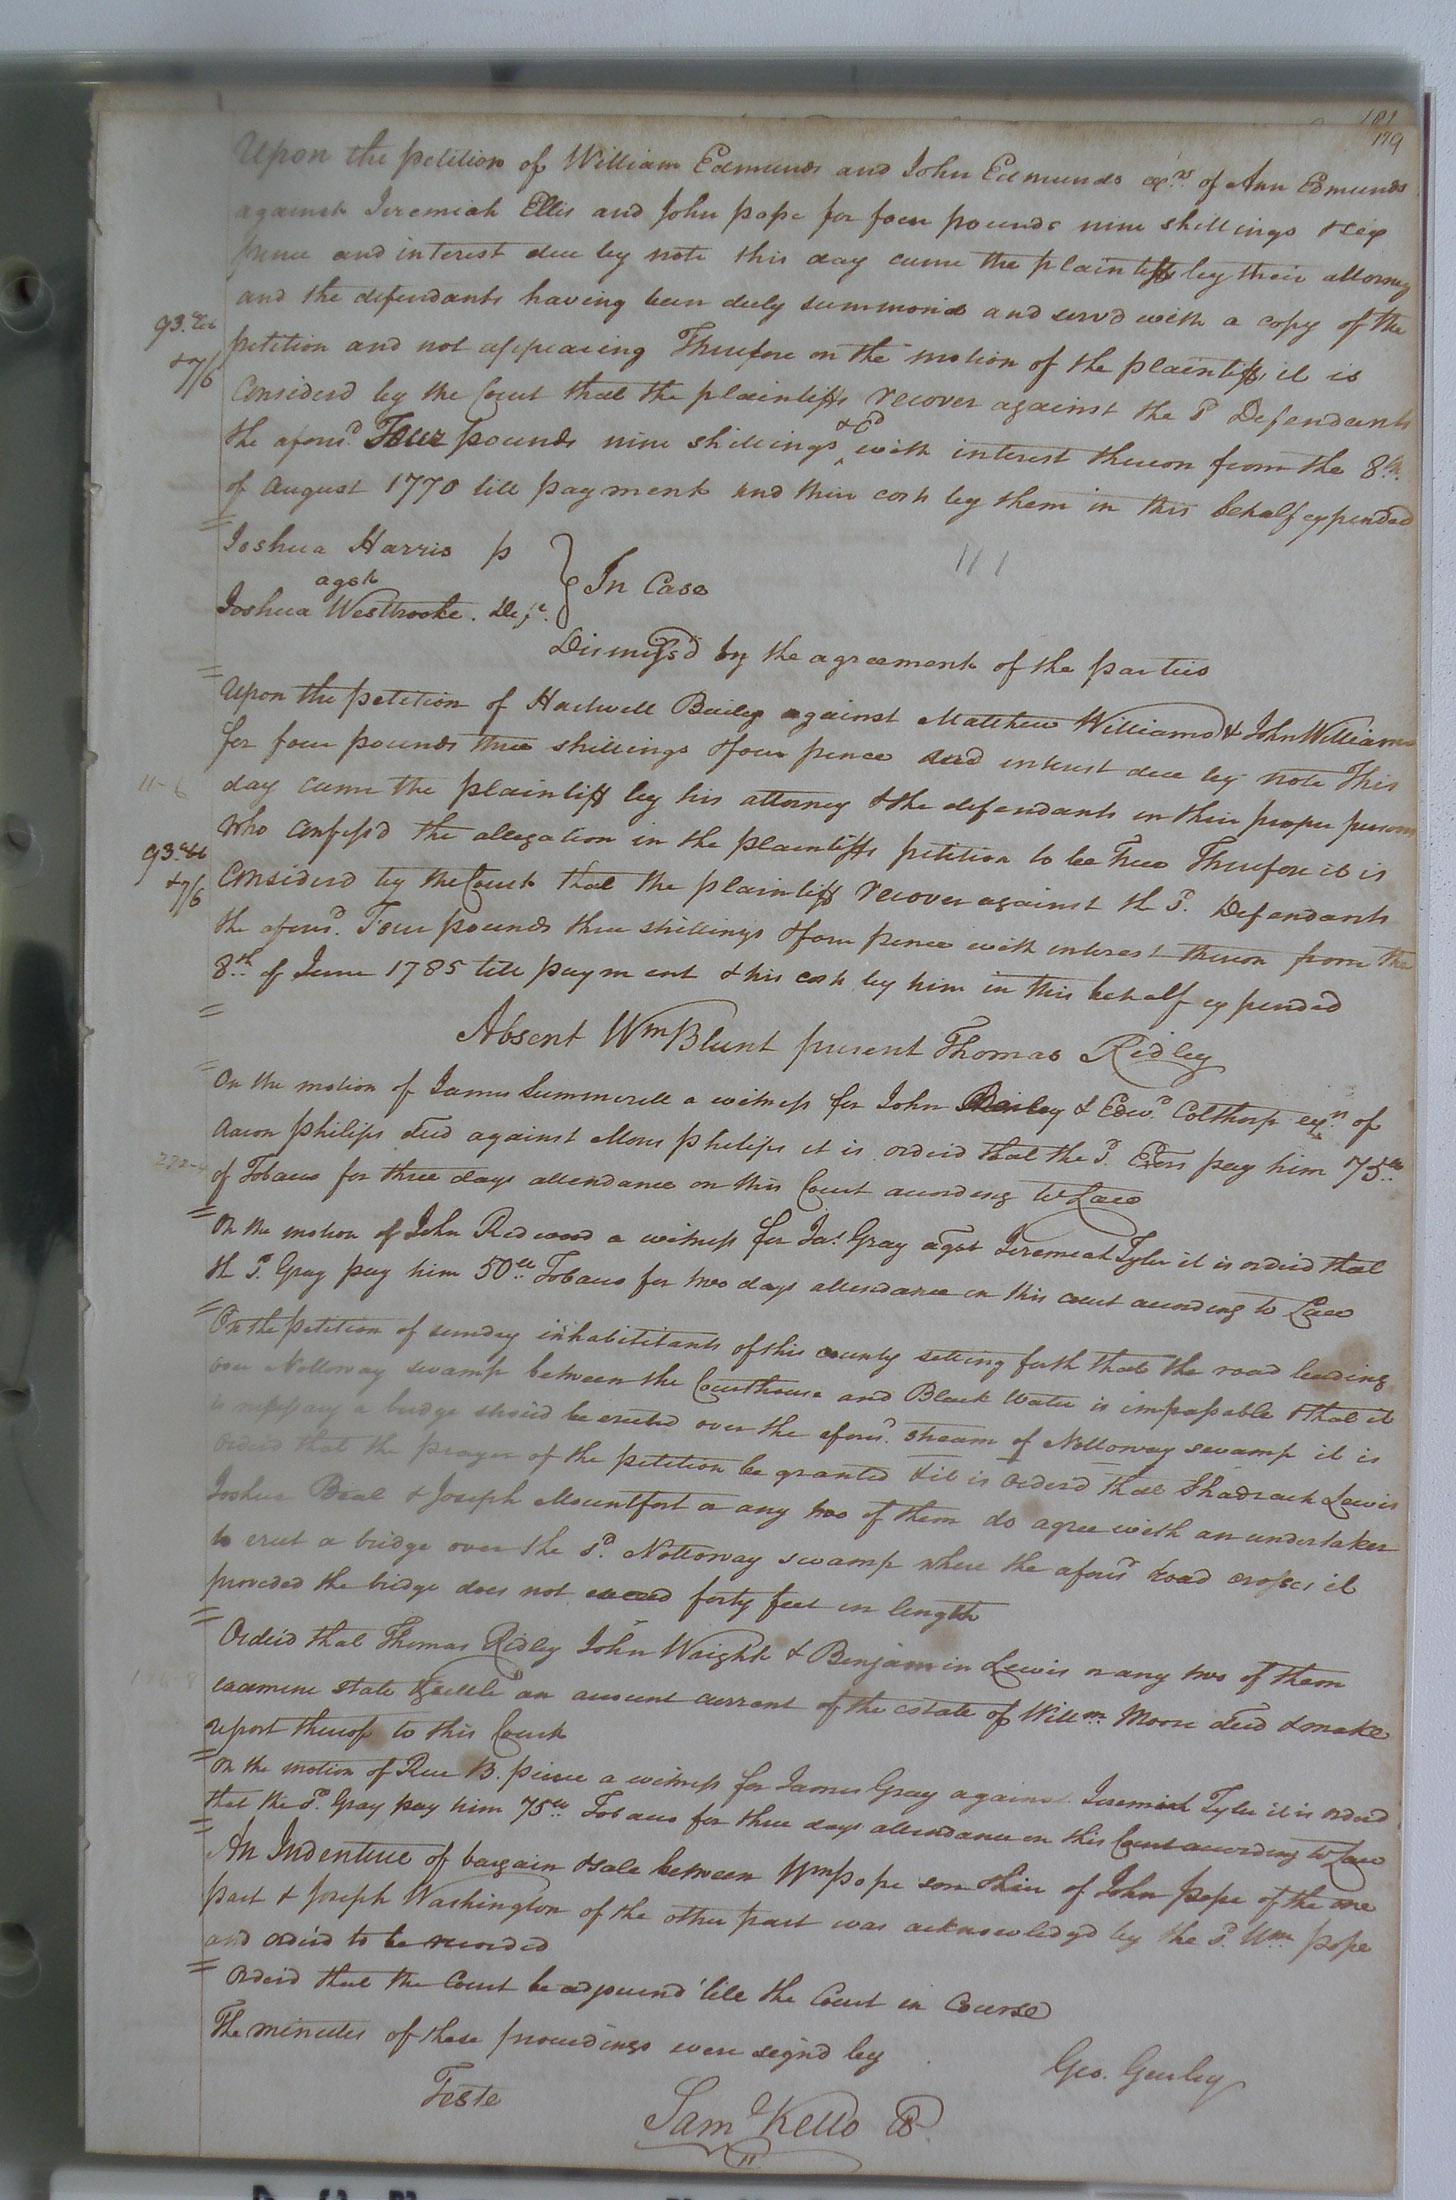 181
179
Upon the petition of William Edmunds and John Edmunds exrs. of Ann Edmunds
against Jeremiah Ellis and John pope for four pounds nine shillings & six
pence and interest due by note this day came the plaintiffs by their attorney
and the defendants having been duly summoned and serv'd with a copy of the
93. &
petition and not appearing Therefore on the motion of the plaintiffs it is
& 7/6
Considerd by the Court that the plaintiffs recover against the sd. Defendants
the aforesd. Four pounds nine shillings & 6d with interest thereon from the 8th.
of August 1770 till payment and their costs by them in this behalf expended
Joshua Harris p
agst
Joshua Westbrooke. Deft.
In Case
111
Dismiss'd by the agreement of the parties
Upon the petition of Hartwell Bailey against Matthew Williams & John Williams
for four pounds three shillings & four pence and interest due by note This
11-6
day came the plaintiff by his attorney & the defendants in their proper persons
who confess'd the allegation in the plaintiffs petition to be True Therefore it is
93. &
& 7/6
Considerd by the Court that the plaintiff recover against the sd. Defendants
the aforesd. Four pounds three shillings & four pence with interest thereon from the
8th. of June 1785 till payment & his costs by him in this behalf expended
Absent Wm Blunt present Thomas Ridley
On the motion of James Summerell a witness for John Bailey & Edwd. Colthorp exrs of
Aaron philips decd against Moses philips it is orderd that the sd. Exors pay him 75lb
of Tobacco for three days attendance on this Court according to Law
On the motion of John Redwood a witness for Jas. Gray agst Jeremiah Tyler it is orderd that
the sd. Gray pay him 50lb Tobacco for two days attendance on this court according to Law
On the petition of sundry inhabititants of this county setting forth that the road leading
over Nottoway swamp between the Courthouse and Black Water is impassable & that it
is necessary a bridge should be erected over the aforesd. stream of Nottoway swamp it is
orderd that the prayer of the petition be granted & it is orderd that Shadrack Lewis
Joshua Beal & Joseph Mountfort or any two of them do agree with an undertaker
to erect a bridge over the sd. Nottoway swamp where the aforesd road crosses it
provided the bridge does not exceed forty feet in length
Order'd that Thomas Ridley John Wright & Benjamin Lewis or any two of them
examine state & settle an account current of the estate of Willm. Moore decd & make
report thereof to this Court
On the motion of Rice B. peirce a witness for James Gray against Jeremiah Tyler it is orderd
that the sd. Gray pay him 75lb Tobacco for three days attendance on this Court according to Law
An Indenture of bargain & sale between Wm pope son & heir of John pope of the one
part & Joseph Washington of the other part was acknowledgd by the sd. Wm pope
and order'd to be recorded
Order'd that the Court be adjournd 'till the Court in Course
The minutes of these proceedings were sign'd by
Geo. Gurley
Teste
Saml Kello